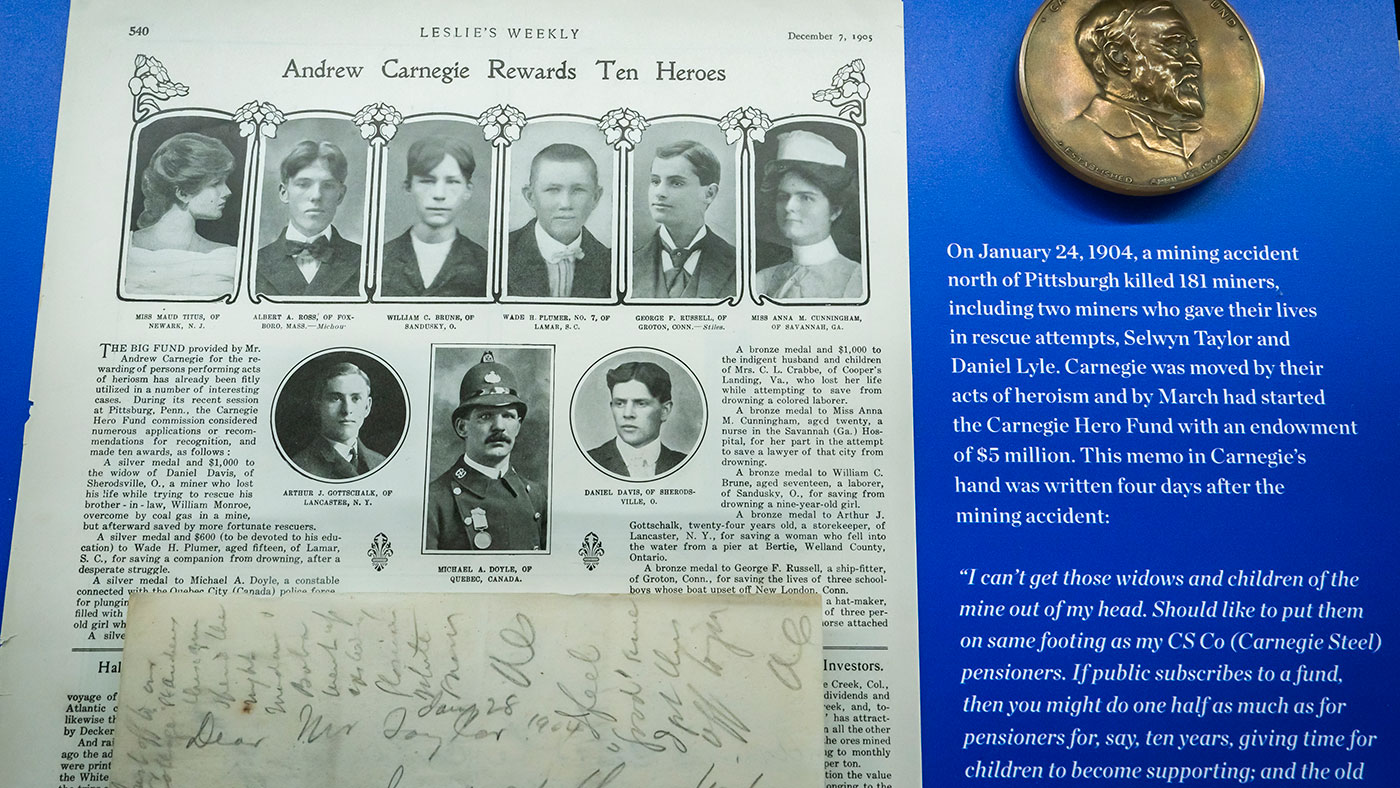 540
LESLIE'S WEEKLY
December 7, 1905
Andrew Carnegie Rewards Ten Heroes
MISS MAUD TITUS, OF
NEWARK, N. J.
ALBERT A. ROSS, OF FOX-
BORO, MASS.—Michou
WILLIAM C. BRUNE, OF
SANDUSKY, O.
WADE H. PLUMER, NO. 7, OF
LAMAR, S. C.
GEORGE F. RUSSELL, OF
GROTON, CONN.—Stiles.
MISS ANNA M. CUNNINGHAM,
OF SAVANNAH, GA.
THE BIG FUND provided by Mr.
Andrew Carnegie for the re-
warding of persons performing acts
of heriosm has already been fitly
utilized in a number of interesting
cases. During its recent session
at Pittsburg, Penn., the Carnegie
Hero Fund commission considered
numerous applications or recom-
mendations for recognition, and
made ten awards, as follows:
A silver medal and $1,000 to
the widow of Daniel Davis, of
Sherodsville, O., a miner who lost
his life while trying to rescue his
brother-in-law, William Monroe,
overcome by coal gas in a mine,
but afterward saved by more fortunate rescuers.
A silver medal and $600 (to be devoted to his edu-
cation) to Wade H. Plumer, aged fifteen, of Lamar,
S. C., for saving a companion from drowning, after a
desperate struggle.
A silver medal to Michael A. Doyle, a constable
connected with the Quebec City (Canada) police force,
for plungin
filled with
old girl wh
A silve
ARTHUR J. GOTTSCHALK, OF
LANCASTER, N. Y.
MICHAEL A. DOYLE, OF
QUEBEC, CANADA.
DANIEL DAVIS, OF SHERODS-
VILLE, O.
A bronze medal and $1,000 to
the indigent husband and children
of Mrs. C. L. Crabbe, of Cooper's
Landing, Va., who lost her life
while attempting to save from
drowning a colored laborer.
A bronze medal to Miss Anna
M. Cunningham, aged twenty, a
nurse in the Savannah (Ga.) Hos-
pital, for her part in the attempt
to save a lawyer of that city from
drowning.
A bronze medal to William C.
Brune, aged seventeen, a laborer,
of Sandusky, O., for saving from
drowning a nine-year-old girl.
A bronze medal to Arthur J.
Gottschalk, twenty-four years old, a storekeeper, of
Lancaster, N. Y., for saving a woman who fell into
the water from a pier at Bertie, Welland County,
Ontario.
A bronze medal to George F. Russell, a ship-fitter,
of Groton, Conn., for saving the lives of three school-
boys whose boat upset off New London, Conn.
a hat-maker,
of three per-
orse attached
Hal
voyage of
Atlantic c
likewise th
by Decker
And rai
ago the ad
were print
the White
Investors.
e Creek, Col.,
dividends and
eek, and, to-
has attract-
n all the other
he ores mined
ng to monthly
per ton.
tion the value
onging to the
Jany 28
1904
Dear Mr Taylor
I feel
ESTABLISHED APRIL 15, 1904
On January 24, 1904, a mining accident
north of Pittsburgh killed 181 miners,
including two miners who gave their lives
in rescue attempts, Selwyn Taylor and
Daniel Lyle. Carnegie was moved by their
acts of heroism and by March had started
the Carnegie Hero Fund with an endowment
of $5 million. This memo in Carnegie's
hand was written four days after the
mining accident:
"I can't get those widows and children of the
mine out of my head. Should like to put them
on same footing as my CS Co (Carnegie Steel)
pensioners. If public subscribes to a fund,
then you might do one half as much as for
pensioners for, say, ten years, giving time for
children to become supporting; and the old